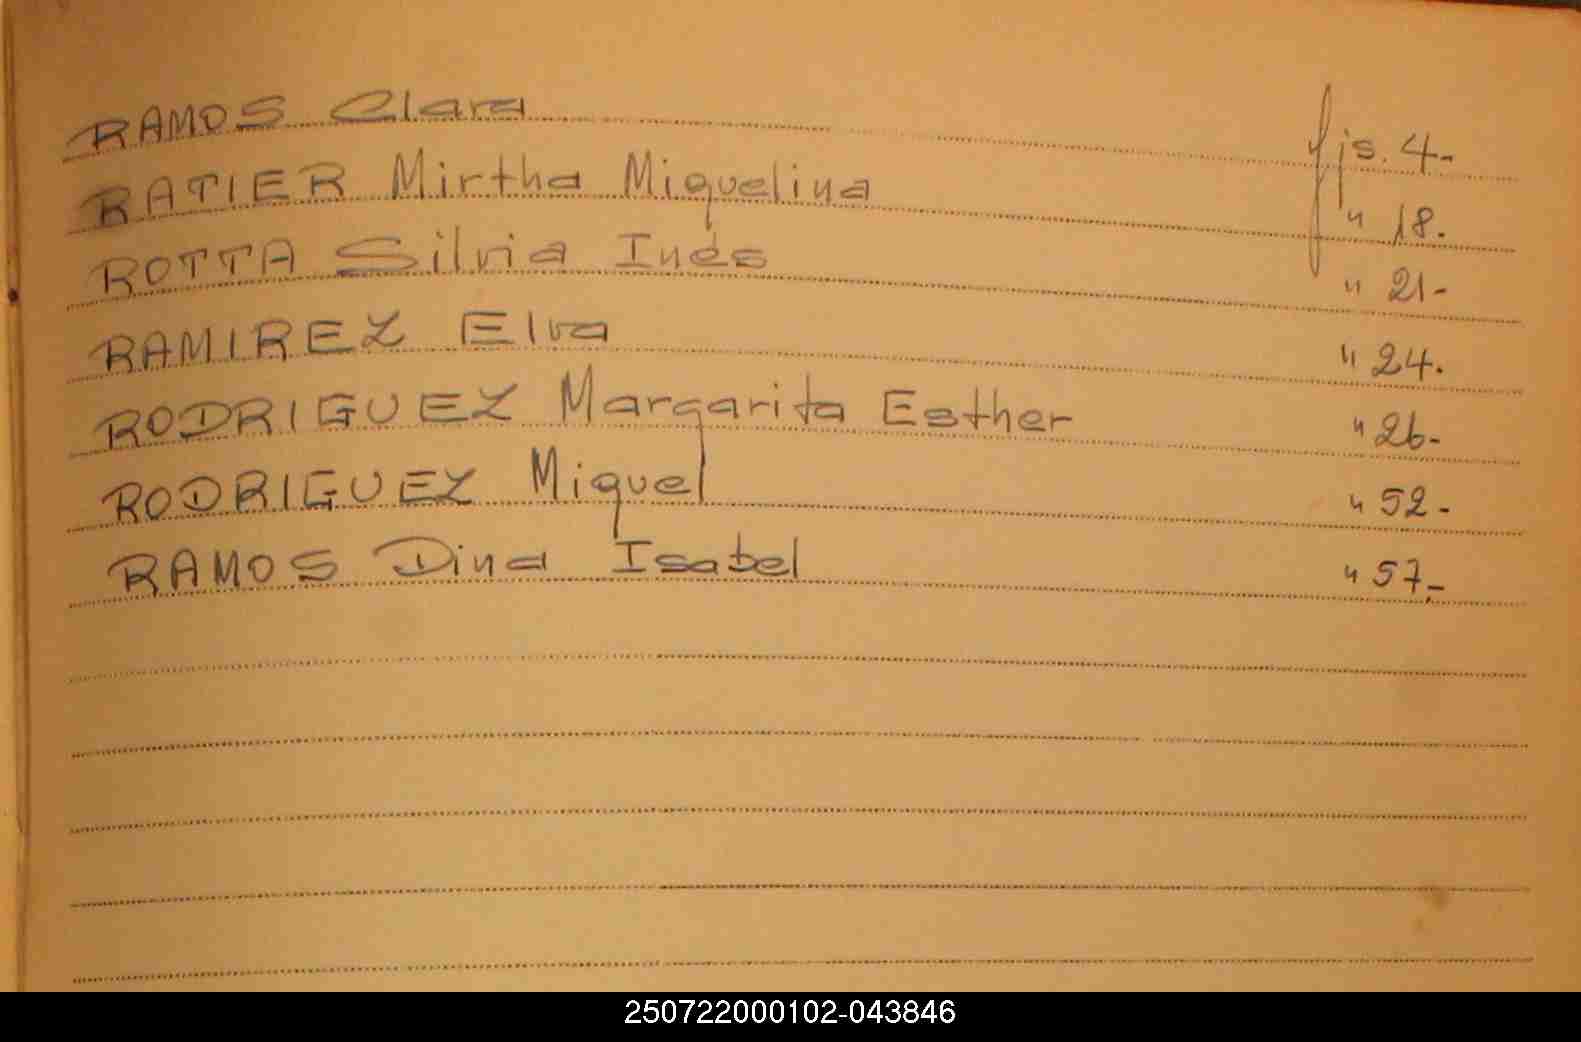 RAMOS Clara fjs. 4-
RATIER Mirtha Miquelina " 18.
ROTTA Silvia Inés " 21-
RAMIREZ Elva " 24.
RODRIGUEZ Margarita Esther " 26-
RODRIGUEZ Miguel " 52-
RAMOS Dina Isabel " 57-
250722000102-043846